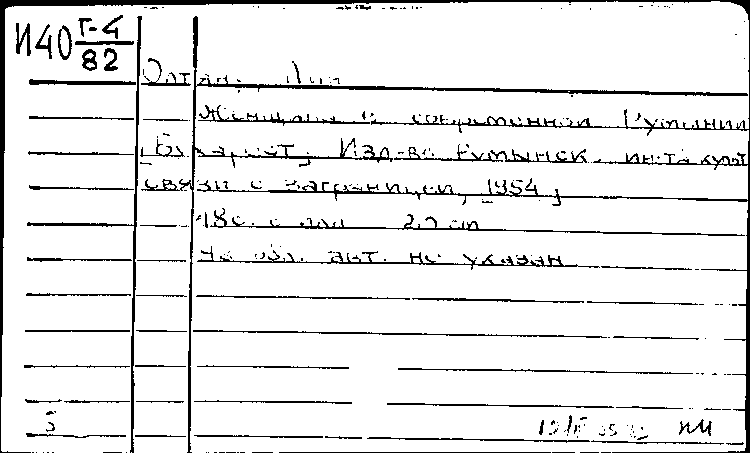 И40 Г-4/82
Женщина в современной Румынии
[Бухарест], Изд-во Румынск. ин-та культ
связи с заграницей, [1954]
48 с. с илл 20 см
На обл. авт. не указан